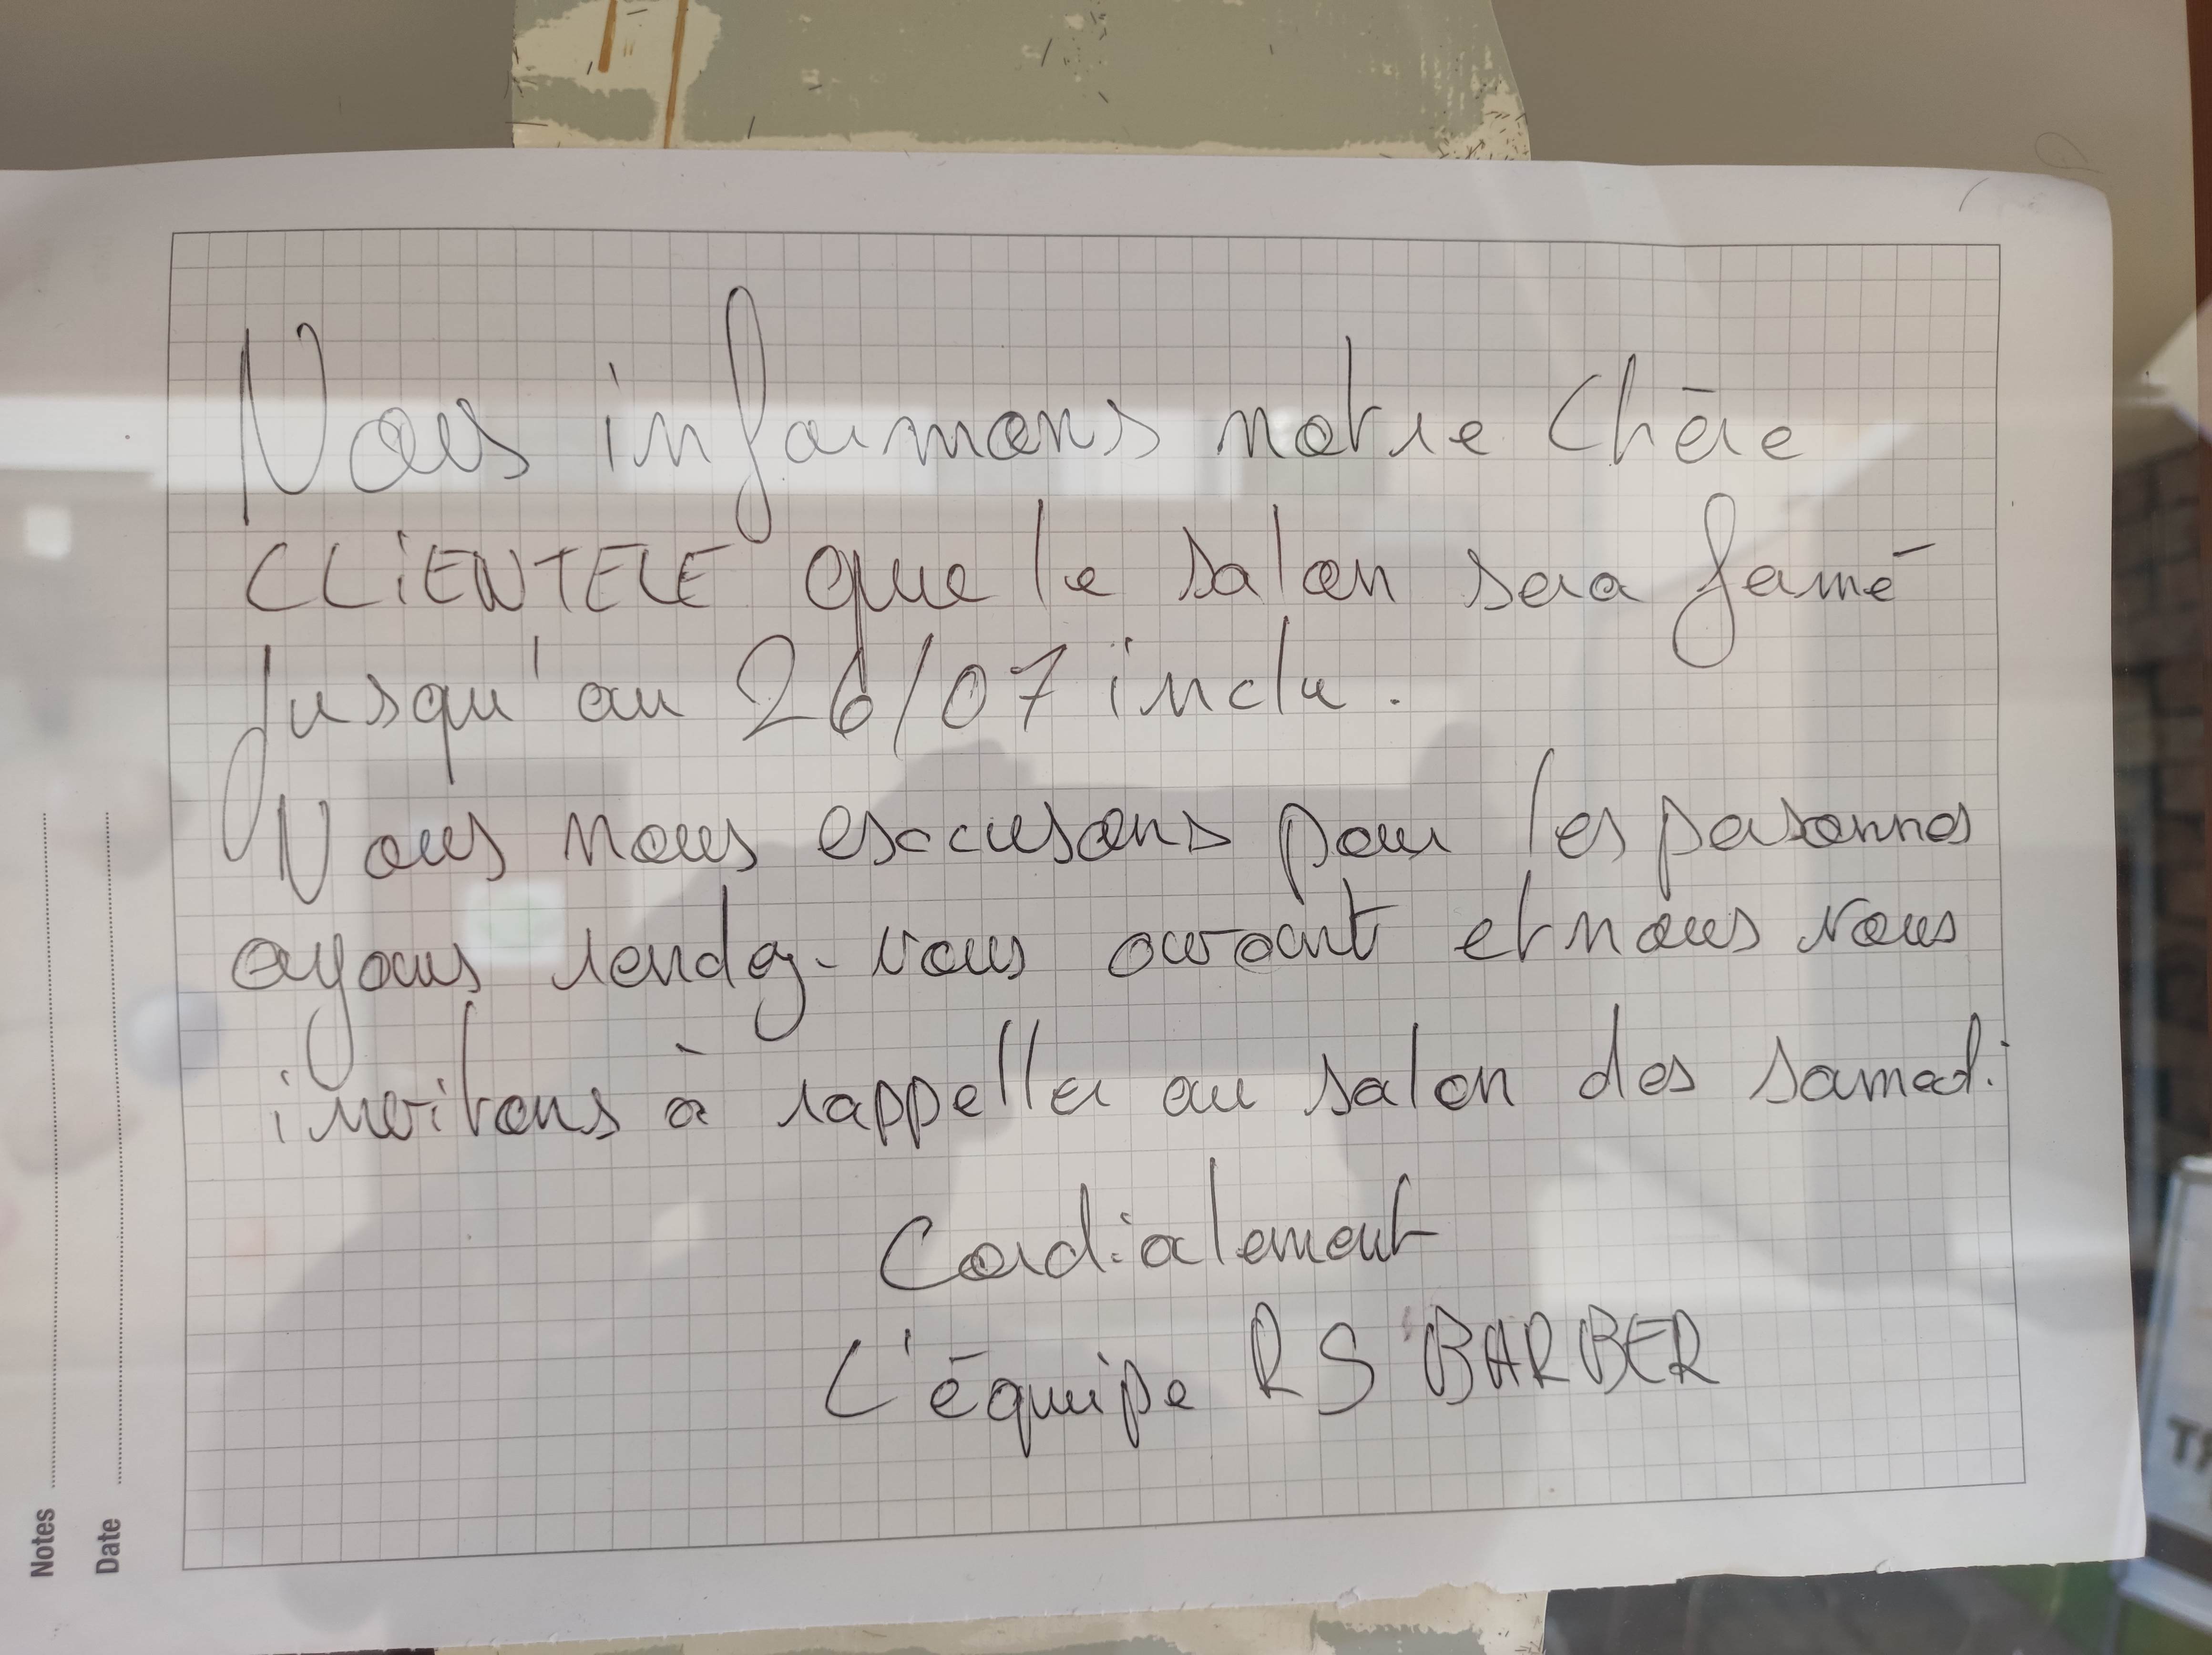 Nous informons notre Chère
CLIENTELE que le salon sera fermé
Jusqu'au 26/07 inclu.
Nous nous excusons pour les personnes
ayons rendez-vous avant et nous vous
invitons à rappeller au salon des samedi
Cordialement
L'équipe RS BARBER
Notes
Date